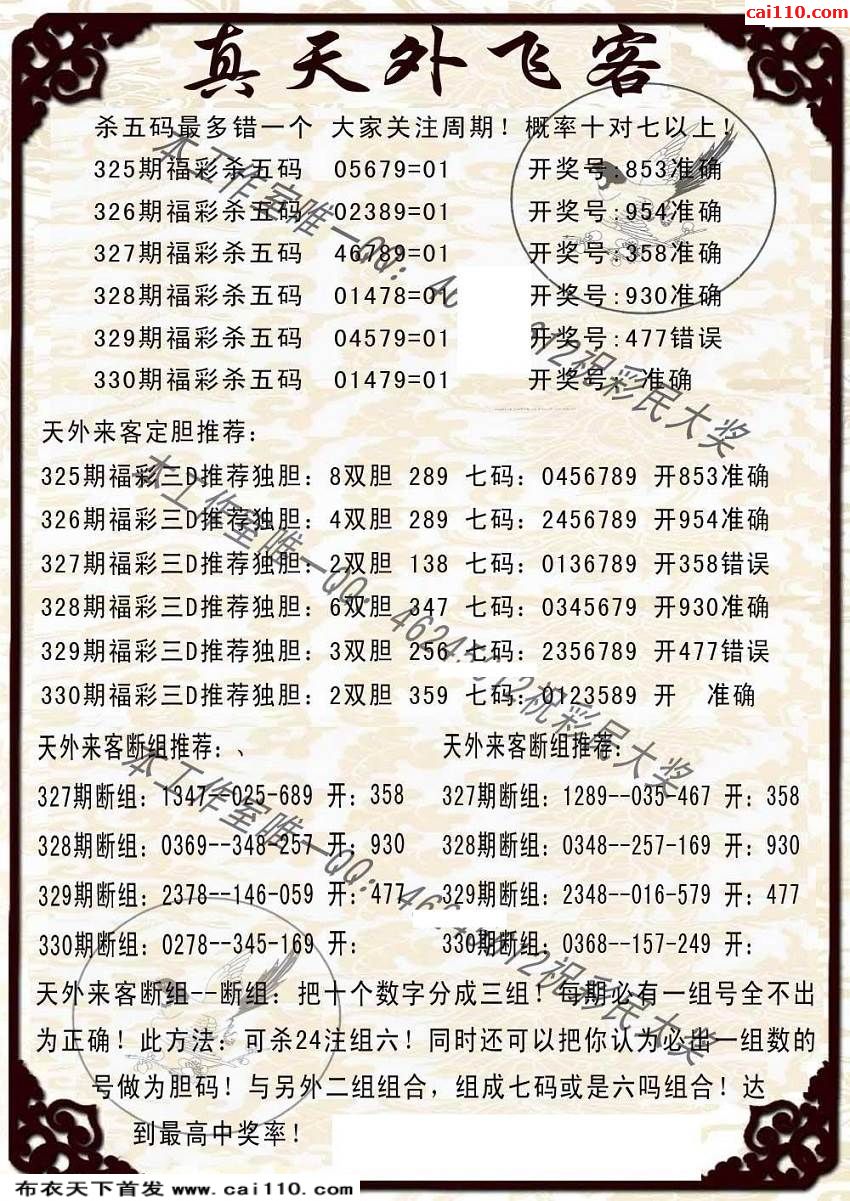 cai110.com
真天外飞客
杀五码最多错一个 大家关注周期！概率十对七以上！
325期福彩杀五码 05679=01 开奖号:853准确
326期福彩杀五码 02389=01 开奖号:954准确
327期福彩杀五码 46189=01 开奖号:358准确
328期福彩杀五码 01478=01 开奖号:930准确
329期福彩杀五码 04579=01 开奖号:477错误
330期福彩杀五码 01479=01 开奖号: 准确
天外来客定胆推荐：
325期福彩三D推荐独胆：8双胆 289 七码：0456789 开853准确
326期福彩三D推荐独胆：4双胆 289 七码：2456789 开954准确
327期福彩三D推荐独胆：2双胆 138 七码：0136789 开358错误
328期福彩三D推荐独胆：6双胆 347 七码：0345679 开930准确
329期福彩三D推荐独胆：3双胆 256 七码：2356789 开477错误
330期福彩三D推荐独胆：2双胆 359 七码：0123589 开 准确
天外来客断组推荐：、 天外来客断组推荐：
327期断组：1347--025-689 开：358 327期断组：1289--035-467 开：358
328期断组：0369--348-257 开：930 328期断组：0348--257-169 开：930
329期断组：2378--146-059 开：477 329期断组：2348--016-579 开：477
330期断组：0278--345-169 开： 330期断组：0368--157-249 开：
天外来客断组--断组：把十个数字分成三组！每期必有一组号全不出
为正确！此方法：可杀24注组六！同时还可以把你认为必出一组数的
号做为胆码！与另外二组组合，组成七码或是六吗组合！达
到最高中奖率！
本工作室唯一QQ：46 12祝彩民大奖
本工作室唯一QQ：4624 12祝彩民大奖
本工作室唯一QQ：46 12祝彩民大奖
布衣天下首发 www.cai110.com